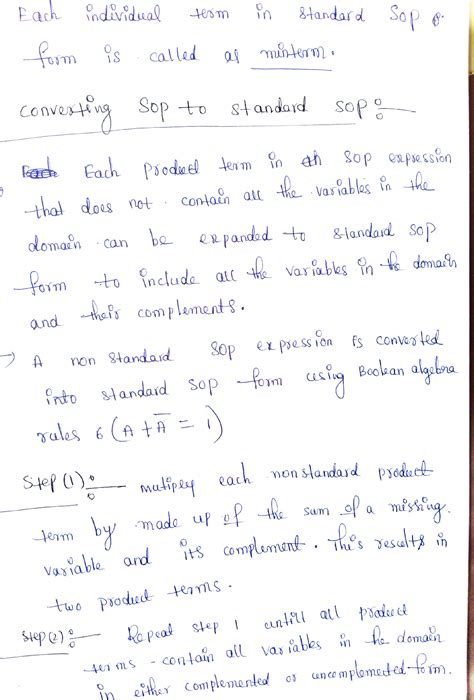 Each individual term in standard Sop
form is called as minterm.
converting Sop to standard sop :-
Each Product term in SOP expression
that does not contain all the variables in the
domain can be expanded to standard sop
form to include all the variables in the domain
and their complements.
→ A non standard Sop expression is converted
into standard sop form using Boolean algebra
rules 6 (A + A̅ = 1)
Step (1) :- multiply each nonstandard product
term by made up of the sum of a missing
variable and its complement. This results in
two product terms.
Step (2) :- Repeat step 1 untill all product
terms - contain all variables in the domain
in either complemented or uncomplemented form.